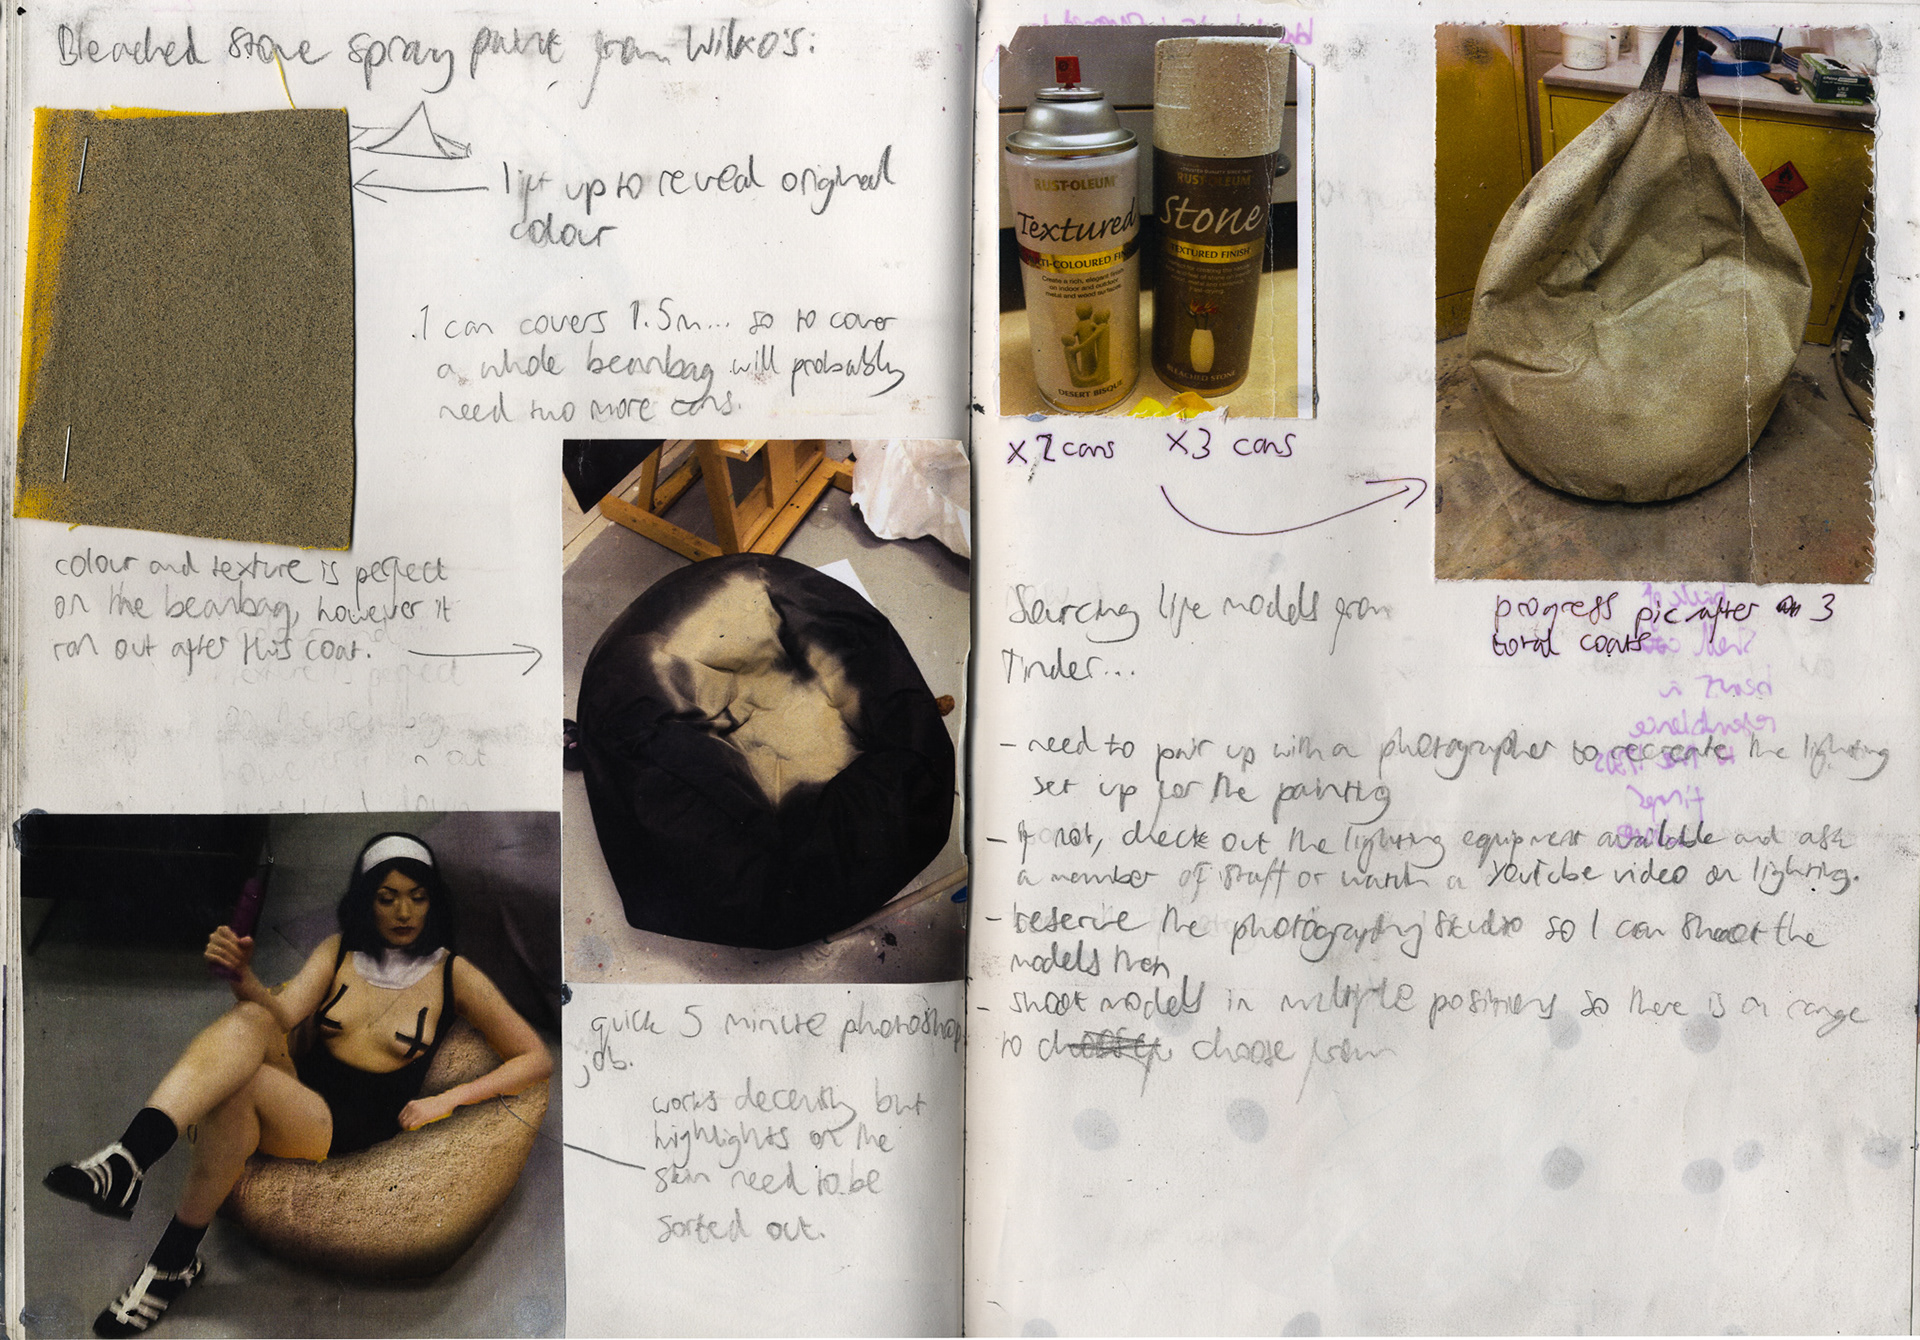 Bleached Stone spray paint from Wilko's:
lift up to reveal original
colour
1 can covers 1.5m... so to cover
a whole beanbag will probably
need two more cans.
colour and texture is perfect
on the beanbag, however it
ran out after this coat.
quick 5 minute photoshop
job.
works decently but
highlights on the
skin need to be
sorted out.
RUST-OLEUM
Textured
MULTI-COLOURED FIN
Create a rich, elegant finish
on indoor and outdoor
metal and wood surfaces
DESERT BISQUE
RUST-OLEUM
Stone
TEXTURED FINISH
BLEACHED STONE
x2 cans x3 cans
progress pic after 3
total coats
Sourcing life models from
Tinder...
- need to pair up with a photographer to recreate the lighting
set up for the painting
- If not, check out the lighting equipment available and ask
a member of staff or watch a YouTube video on lighting.
- reserve the photography studio so I can shoot the
models then
- shoot models in multiple positions so there is a range
to choose from